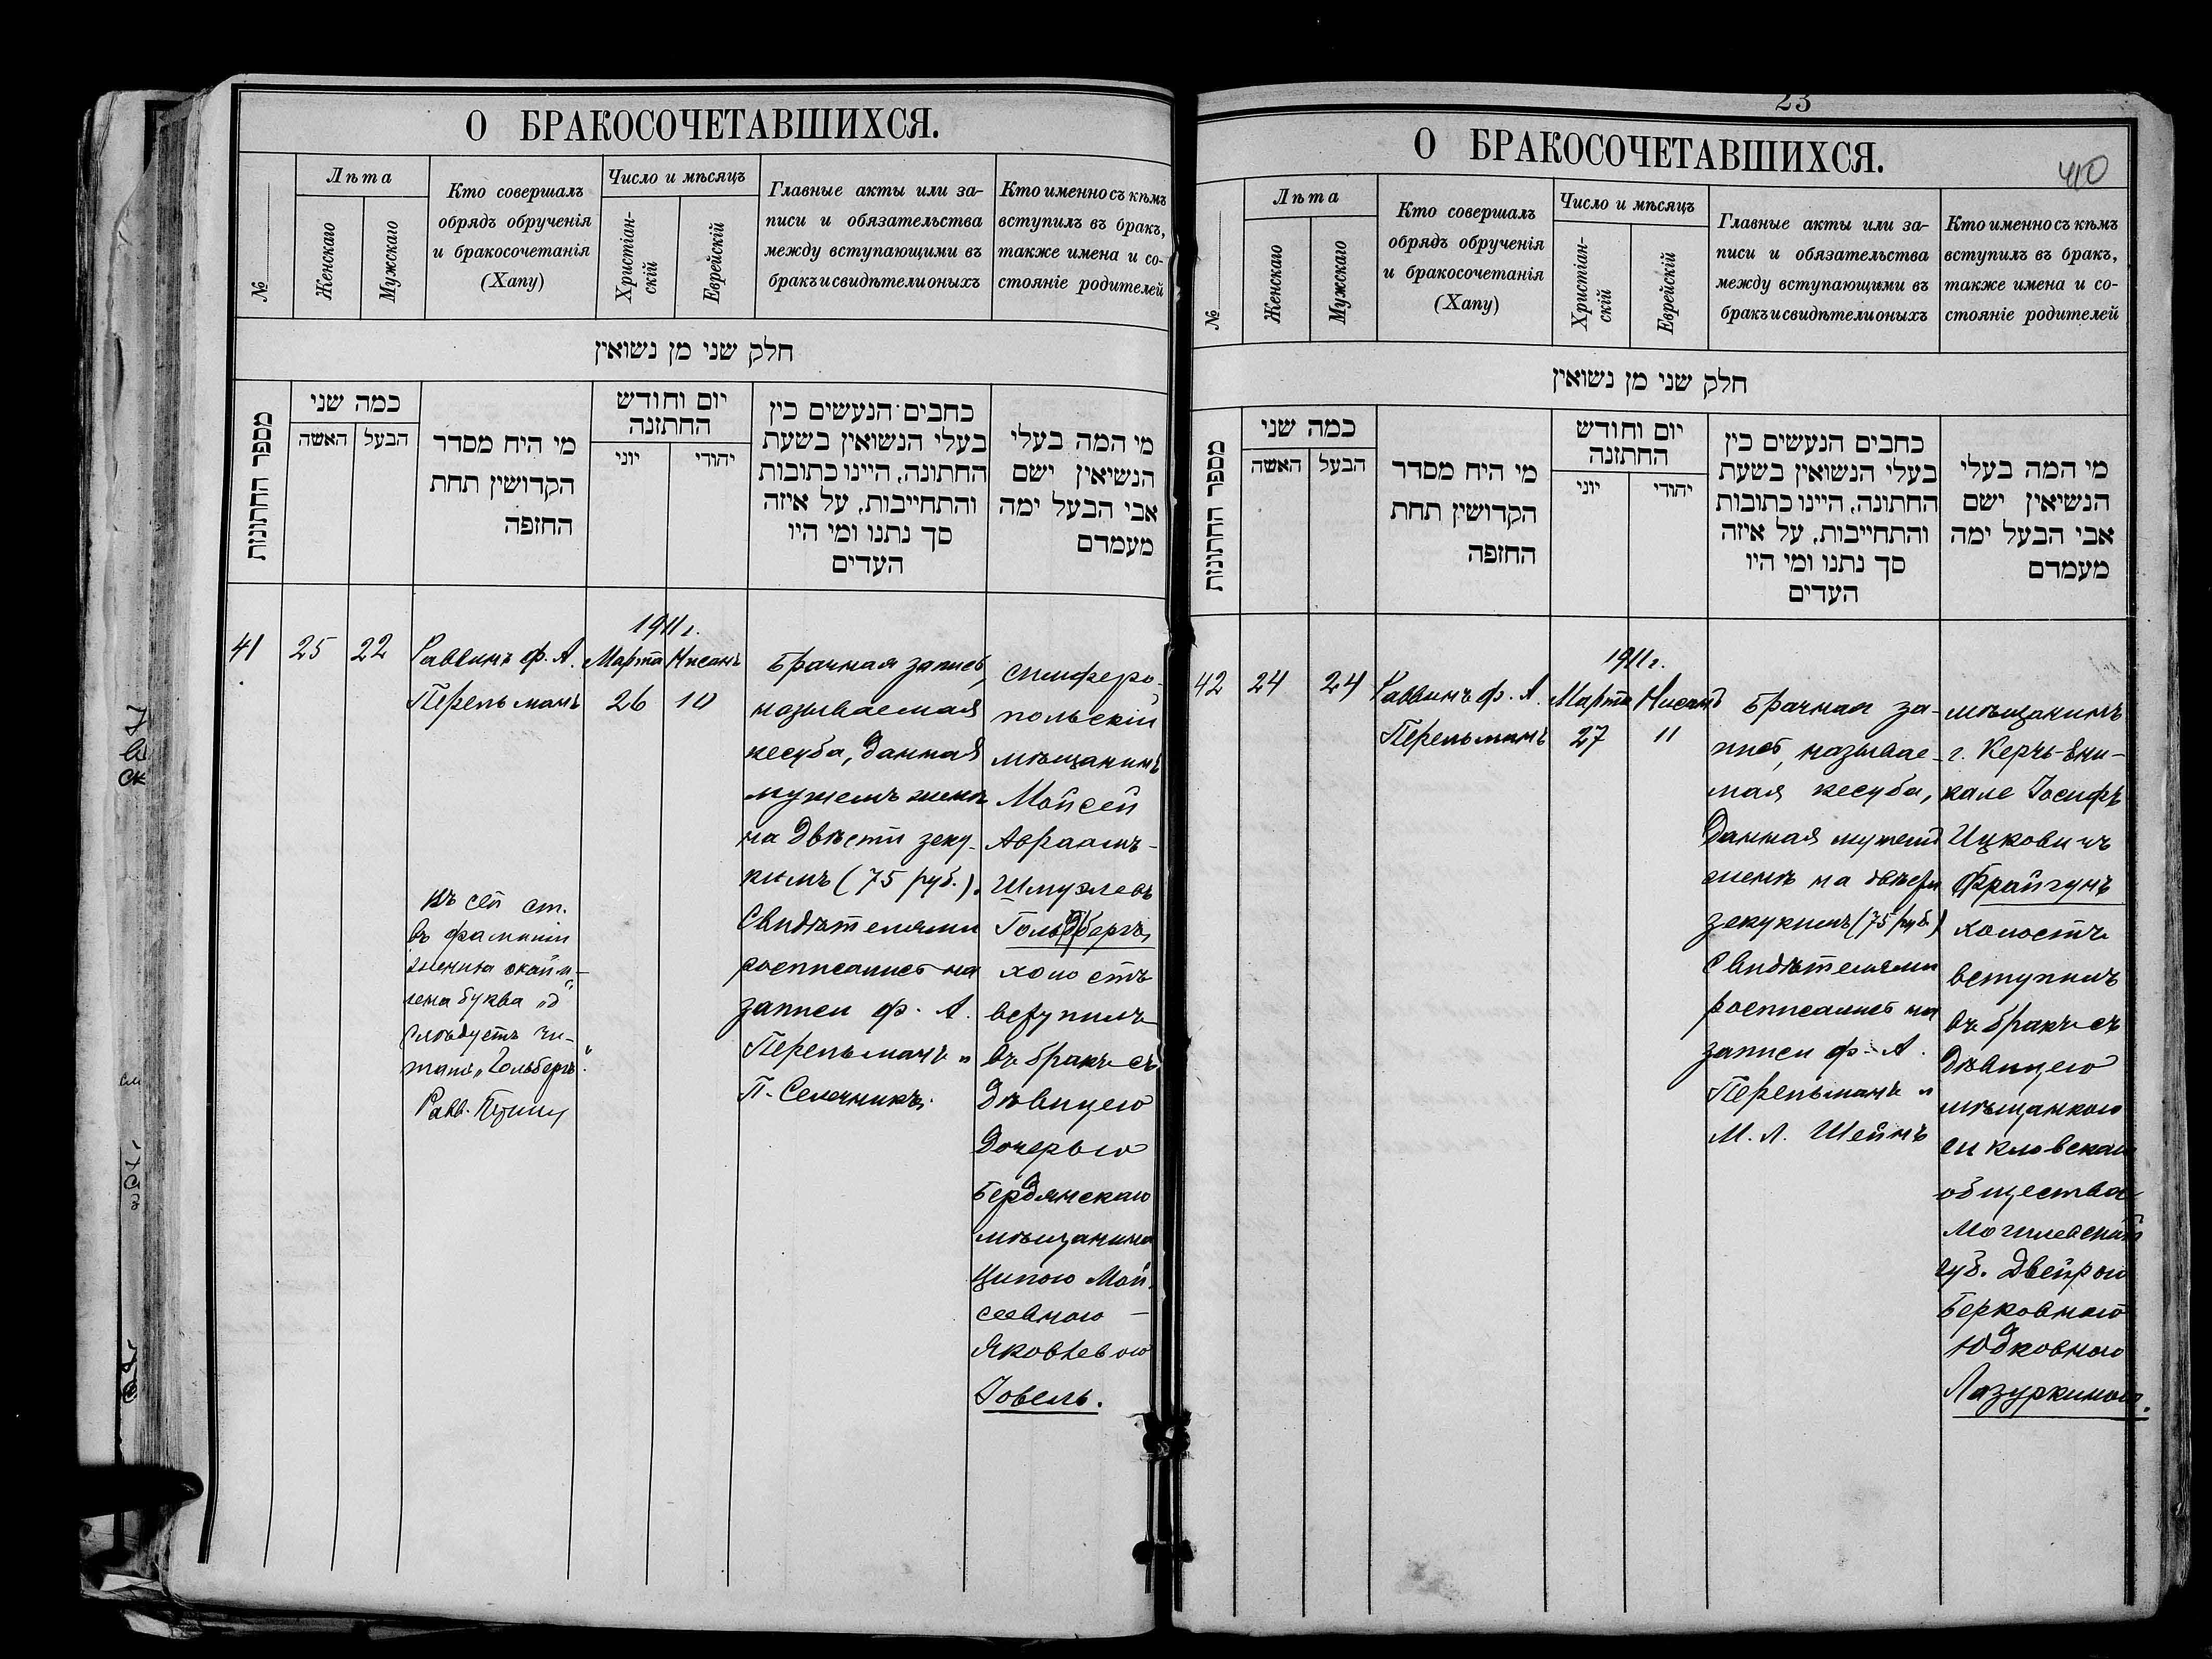 О БРАКОСОЧЕТАВШИХСЯ.
№
Лѣта
Женскаго
Мужскаго
Кто совершалъ
обрядъ обрученія
и бракосочетанія
(Хапу)
Число и мѣсяцъ
Христіан-
скій
Еврейскій
Главные акты или за-
писи и обязательства
между вступающими въ
бракъ и свидѣтели оныхъ
Кто именно съ кѣмъ
вступилъ въ бракъ,
также имена и со-
стояніе родителей
חלק שני מן נשואין
מספר החתונות
כמה שני
האשה
הבעל
מי היח מסדר
הקדושין תחת
החופה
יום וחודש
החתונה
יוני
יהודי
כחבים הנעשים כין
בעלי הנשואין בשעת
החתונה, היינו כתובות
והתחייבות, על איזה
סך נתנו ומי היו
העדים
מי המה בעלי
הנשיאין ישם
אבי הבעל ימה
מעמדם
41
25
22
Раввинъ ф. А.
Перельманъ
1911 г.
Марта
26
Нисанъ
10
Брачная запись,
называемая
кесуба, данная
мужемъ женѣ
на двѣсти зеку-
кимъ (75 руб.).
Свидѣтелями
росписались на
записи ф. А.
Перельманъ и
П. Селечникъ.
Симферо-
польскій
мѣщанинъ
Мойсей
Авраамъ-
Шмулевъ
Гольдбергъ,
холостъ
вступилъ
въ бракъ съ
дѣвицею
дочерью
Бердянскаго
мѣщанина
Ципою Мой-
сеевною –
Яковлевою
Іовель.
Къ сей ст.
въ фамиліи
жениха окайм-
лена буква „д“
слѣдуетъ чи-
тать „Гольбергъ“.
Равв.
23
40
О БРАКОСОЧЕТАВШИХСЯ.
№
Лѣта
Женскаго
Мужскаго
Кто совершалъ
обрядъ обрученія
и бракосочетанія
(Хапу)
Число и мѣсяцъ
Христіан-
скій
Еврейскій
Главные акты или за-
писи и обязательства
между вступающими въ
бракъ и свидѣтели оныхъ
Кто именно съ кѣмъ
вступилъ въ бракъ,
также имена и со-
стояніе родителей
חלק שני מן נשואין
מספר החתונות
כמה שני
האשה
הבעל
מי היח מסדר
הקדושין תחת
החופה
יום וחודש
החתונה
יוני
יהודי
כחבים הנעשים כין
בעלי הנשואין בשעת
החתונה, היינו כתובות
והתחייבות, על איזה
סך נתנו ומי היו
העדים
מי המה בעלי
הנשיאין ישם
אבי הבעל ימה
מעמדם
42
24
24
Раввинъ ф. А.
Перельманъ
1911 г.
Марта
27
Нисанъ
11
Брачная за-
пись, называе-
мая кесуба,
данная мужемъ
женѣ на двѣсти
зекукимъ (75 руб.)
Свидѣтелями
росписались на
записи ф. А.
Перельманъ и
М. Л. Шейнъ
мѣщанинъ
г. Керчь-Ени-
кале Іосифъ
Ицковичъ
Фрайгунъ
холостъ
вступилъ
въ бракъ съ
дѣвицею
мѣщанкою
Шкловскаго
общества
Могилевской
губ. Двейрою
Берковною
Юдковною
Лазуркиною.